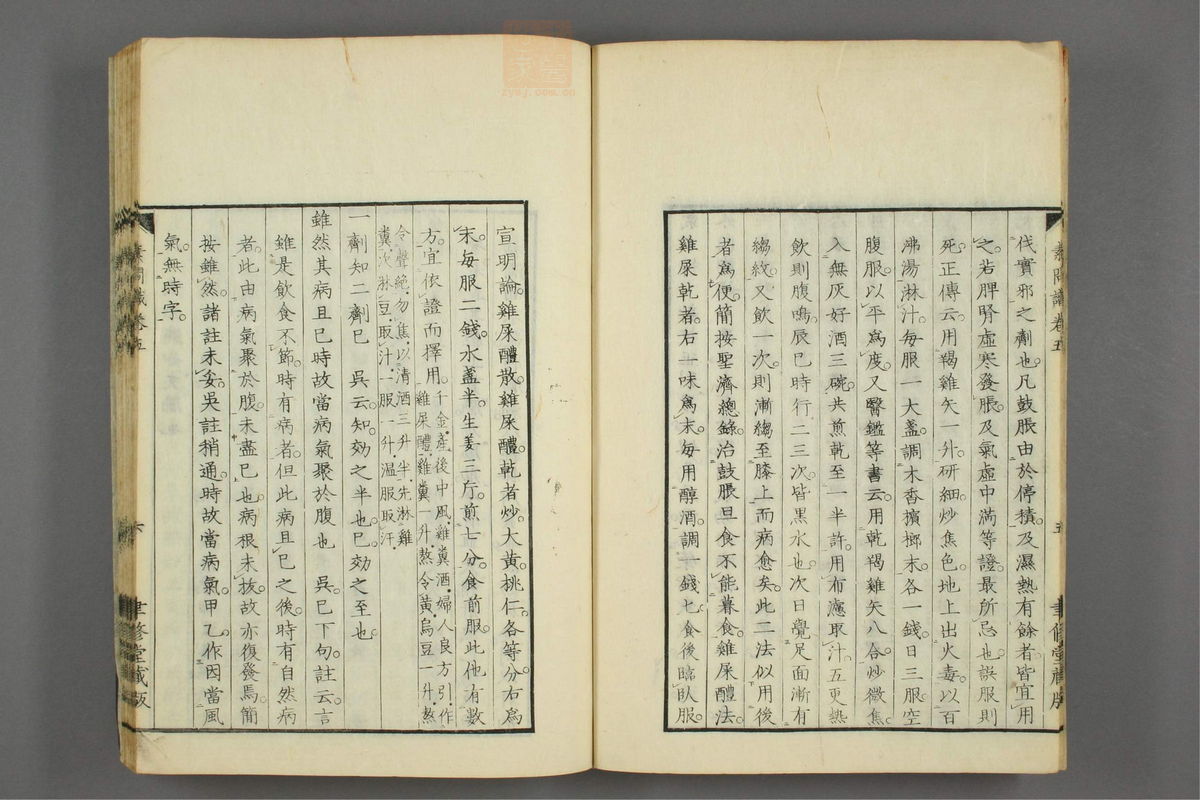 伐實邪之劑也。凡鼓脹由於停積。及濕熱有餘者。皆宜用
之。若脾腎虛寒發脹。及氣虛中滿等證。最所忌也。誤服則
死。正傳云。用羯雞矢一升。研細。炒焦色。地上出火毒。以百
沸湯淋汁。每服一大盞。調木香檳榔末各一錢。日三服。空
腹服。以平爲度。又醫鑑等書云。用乾羯雞矢八合。炒微焦。
入無灰好酒三碗。共煎乾至一半許。用布濾取汁。五更熱
飲。則腹鳴。辰巳時行二三次。皆黑水也。次日覺足面漸有
縐紋。又飲一次。則漸縐至膝上而病愈矣。此二法似用後
者爲便。簡按聖濟總錄。治鼓脹旦食不能暮食。雞屎醴法。
雞屎乾者。右一味爲末。每用醇酒調一錢匕。食後臨臥服。
素問識卷五
五
聿修堂藏版
宣明論。雞屎醴散。雞屎醴。乾者炒。大黃。桃仁。各等分。右爲
末。每服二錢。水盞半。生姜三片。煎七分。食前服。此他有數
方。宜依證而擇用。千金。產後中風。雞糞酒。婦人良方引。作
雞屎醴。雞糞一升。熬令黃。烏豆一升。熬
令聲絕。勿焦。以清酒三升半。先淋雞
糞。次淋豆。取汁。一服一升。温服取汗。
一劑知二劑已 吳云。知。効之半也。已。効之至也。
雖然其病且已時故當病氣聚於腹也 吳已下句。註云。言
雖是飲食不節。時有病者。但此病且已之後。時有自然病
者。此由病氣聚於腹。未盡已也。病根未拔。故亦復發焉。簡
按雖然。諸註未妥。吳註稍通。時故當病氣。甲乙。作因當風
氣。無時字。
素問識卷五
六
聿修堂藏版